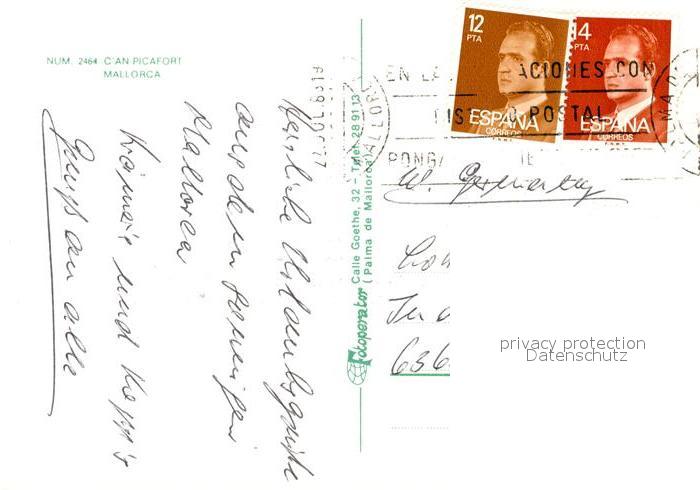 NUM. 2464 C'AN PICAFORT
MALLORCA
Herzliche Urlaubsgrüße
aus dem sonnigen
Mallorca
und
Gruß an alle
Fotoperator
Calle Goethe, 32 - Telef. 28 91 13
(Palma de Mallorca)
12
PTA
ESPAÑA
CORREOS
14
PTA
ESPAÑA
CORREOS
EN LA ACIONES CON
DIST O POSTAL
PONGA
W. Germany
In d
636
privacy protection
Datenschutz